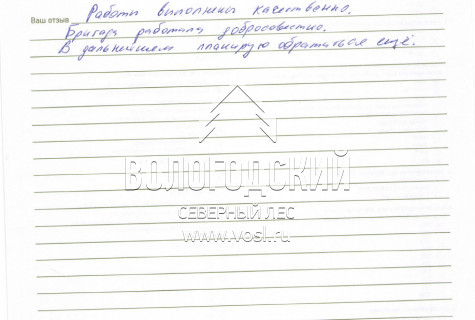 Ваш отзыв Работы выполнены качественно.
Бригада работала добросовестно.
В дальнейшем планирую обратиться ещё.
ВОЛОГОДСКИЙ
СЕВЕРНЫЙ ЛЕС
www.vosl.ru